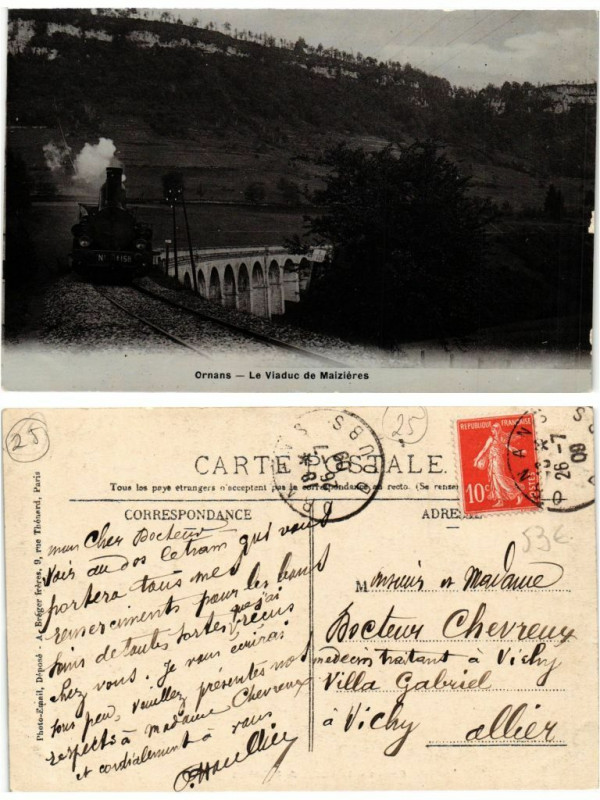 Nº 4158
Ornans — Le Viaduc de Maizières
25
25
53€
CARTE POSTALE
Tous les pays étrangers n'acceptent pas la correspondance au recto. (Se rense
CORRESPONDANCE
ADRESSE
ORNANS
DOUBS
26-7
09
REPUBLIQUE FRANÇAISE
10c
ORNANS
26-7
09
Photo-Email, Déposé - A. Bréger frères, 9, rue Thénard, Paris
mon Cher Docteur
Voir au dos le tram qui vous
portera tous mes
remerciments pour les bons
soins de toutes sortes que j'ai reçus
chez vous. Je vous écrirai
sous peu, veuillez présenter nos
respects à madame Chevreux
et cordialement à vous
Monsieur et Madame
Docteur Chevreux
medecin traitant à Vichy
Villa Gabriel
à Vichy
allier